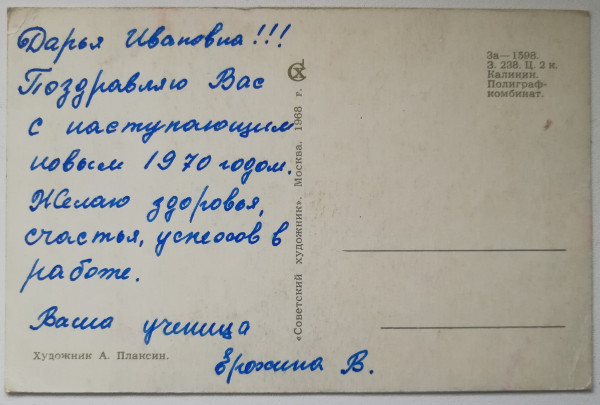 Дарья Ивановна!!!
Поздравляю Вас
с наступающим
новым 1970 годом.
Желаю здоровья,
счастья, успехов в
работе.
Ваша ученица
Ерохина В.
Художник А. Плаксин.
«Советский художник». Москва. 1968 г.
За—1598.
З. 238. Ц. 2 к.
Калинин.
Полиграф-
комбинат.